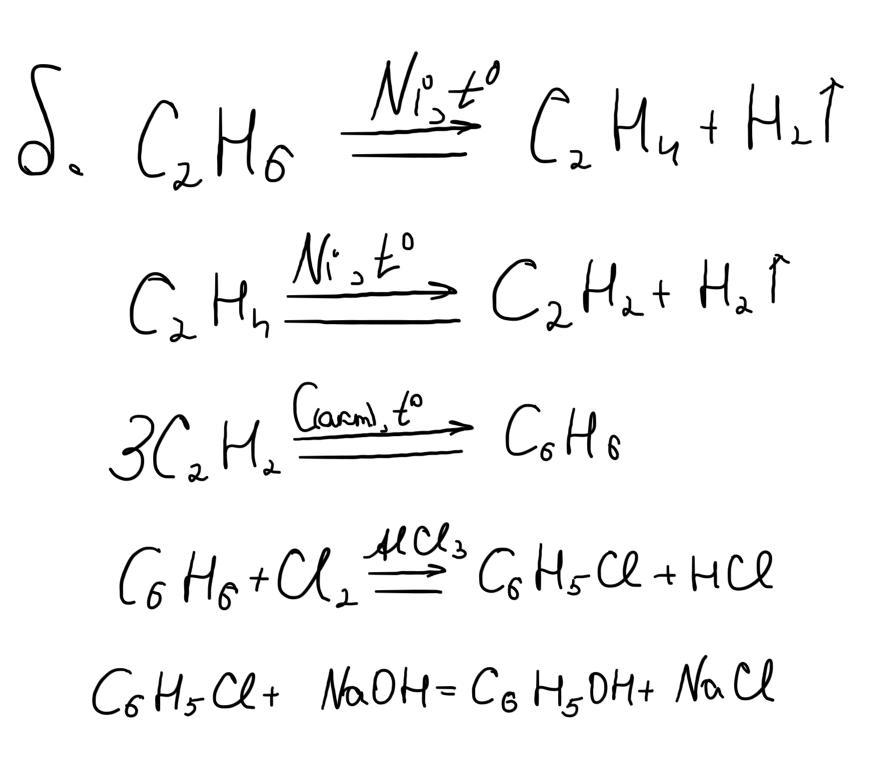 б. C₂H₆ Ni, t° ⇒ C₂H₄ + H₂↑
C₂H₄ Ni, t° ⇒ C₂H₂ + H₂↑
3C₂H₂ C(акт), t° ⇒ C₆H₆
C₆H₆ + Cl₂ AlCl₃ ⇒ C₆H₅Cl + HCl
C₆H₅Cl + NaOH = C₆H₅OH + NaCl